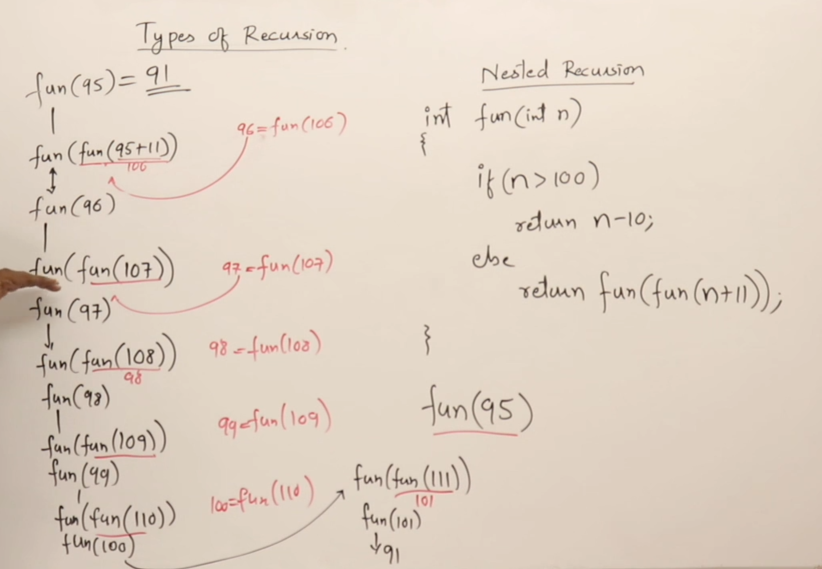 Types of Recursion
fun(95) = 91
fun(fun(95+11))
106
96=fun(106)
fun(96)
fun(fun(107))
97=fun(107)
fun(97)
fun(fun(108))
98
98=fun(108)
fun(98)
99=fun(109)
fun(fun(109))
fun(99)
100=fun(110)
fun(fun(110))
fun(100)
fun(fun(111))
101
fun(101)
91
Nested Recursion
int fun(int n)
{
if(n>100)
return n-10;
else
return fun(fun(n+11));
}
fun(95)